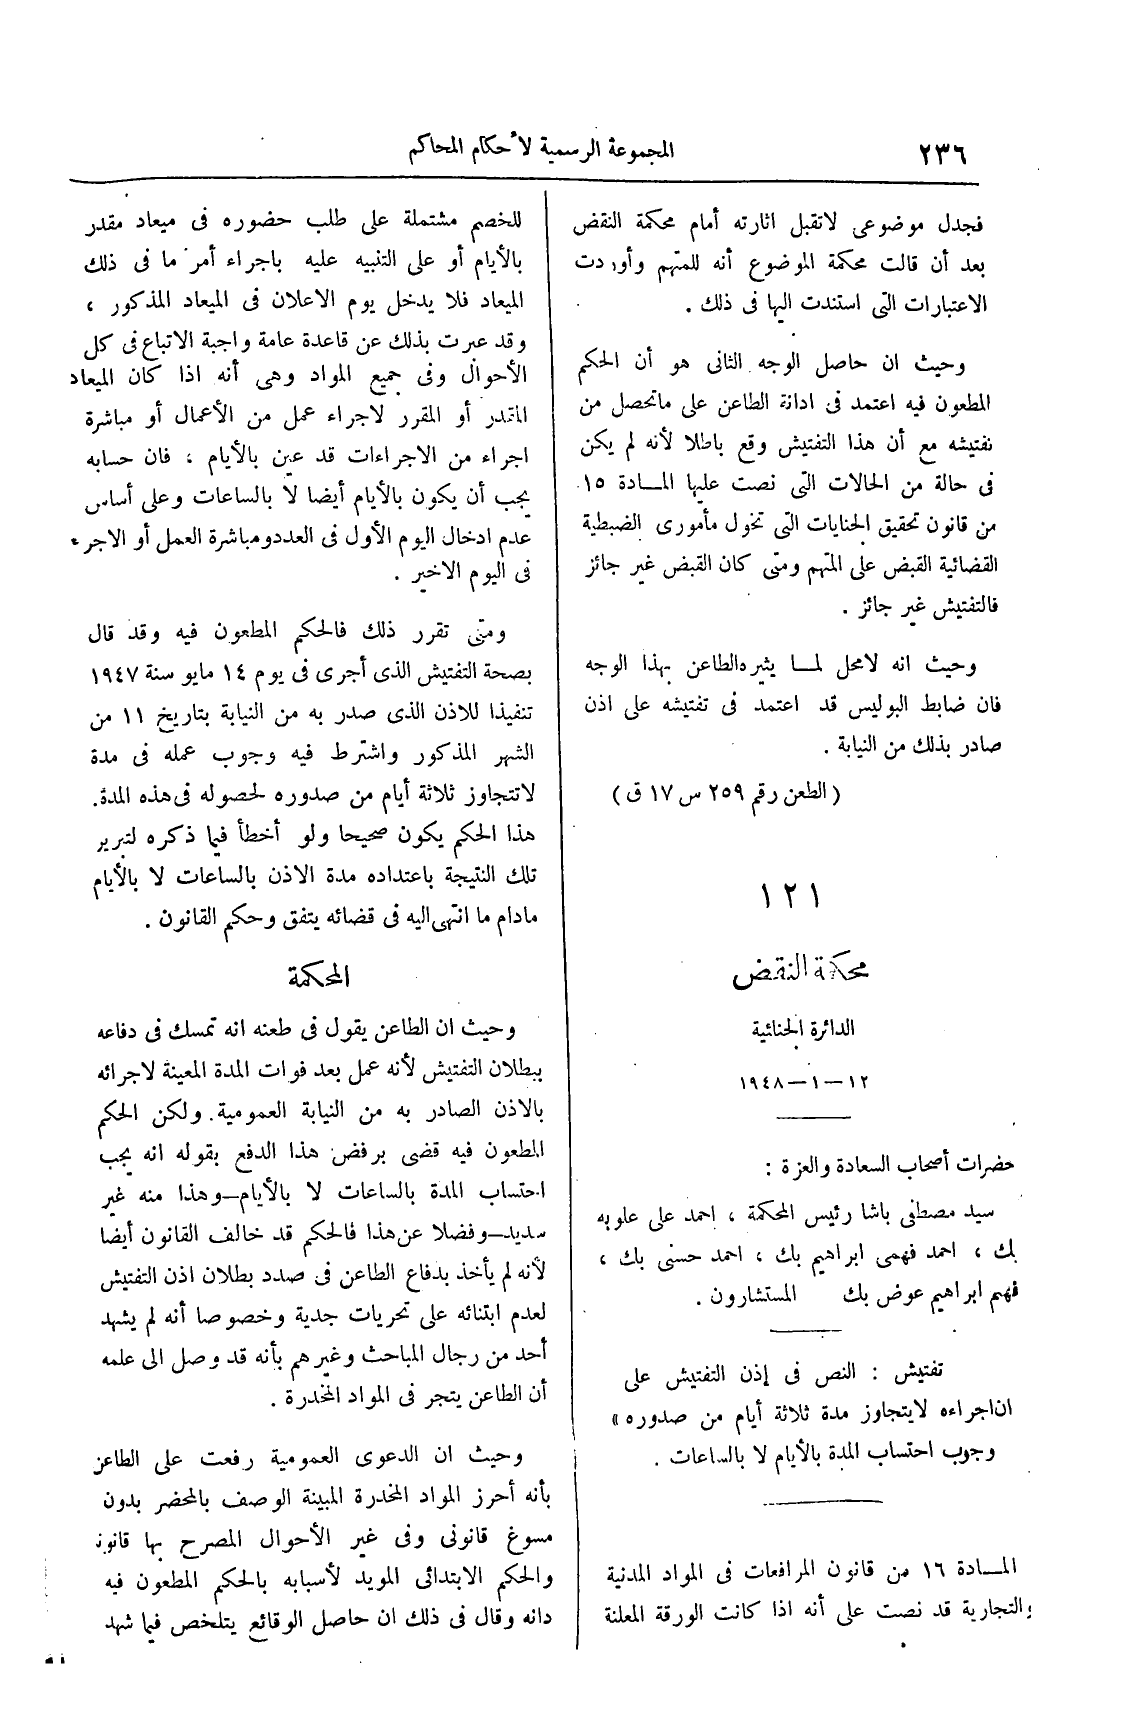 ٢٣٦
المجموعة الرسمية لأحكام المحاكم
فجدل موضوعى لاتقبل اثارته أمام محكمة النقض
بعد أن قالت محكمة الموضوع أنه للمتهم وأوردت
الاعتبارات التى استندت اليها فى ذلك .
وحيث ان حاصل الوجه الثانى هو أن الحكم
المطعون فيه اعتمد فى ادانة الطاعن على ماتحصل من
تفتيشه مع أن هذا التفتيش وقع باطلا لأنه لم يكن
فى حالة من الحالات التى نصت عليها المـــادة ١٥
من قانون تحقيق الجنايات التى تخول مأمورى الضبطية
القضائية القبض على المتهم ومتى كان القبض غير جائز
فالتفتيش غير جائز .
وحيث انه لامحل لمــا يثيره الطاعن بهذا الوجه
فان ضابط البوليس قد اعتمد فى تفتيشه على اذن
صادر بذلك من النيابة .
( الطعن رقم ٢٥٩ س ١٧ ق )
١٢١
محكمة النقض
الدائرة الجنائية
١٢ – ١ – ١٩٤٨
حضرات أصحاب السعادة والعزة :
سيد مصطفى باشا رئيس المحكمة ، احمد على علوبه
بك ، احمد فهمى ابراهيم بك ، احمد حسنى بك ،
فهيم ابراهيم عوض بك المستشارون .
تفتيش : النص فى إذن التفتيش على
ان اجراءه لايتجاوز مدة ثلاثة أيام من صدوره »
وجوب احتساب المدة بالأيام لا بالساعات .
المـــادة ١٦ من قانون المرافعات فى المواد المدنية
والتجارية قد نصت على أنه اذا كانت الورقة المعلنة
للخصم مشتملة على طلب حضوره فى ميعاد مقدر
بالأيام أو على التنبيه عليه باجراء أمر ما فى ذلك
الميعاد فلا يدخل يوم الاعلان فى الميعاد المذكور ،
وقد عبرت بذلك عن قاعدة عامة واجبة الاتباع فى كل
الأحوال وفى جميع المواد وهى أنه اذا كان الميعاد
المقدر أو المقرر لاجراء عمل من الأعمال أو مباشرة
اجراء من الاجراءات قد عين بالأيام ، فان حسابه
يجب أن يكون بالأيام أيضا لا بالساعات وعلى أساس
عدم ادخال اليوم الأول فى العدد ومباشرة العمل أو الاجراء
فى اليوم الاخير .
ومتى تقرر ذلك فالحكم المطعون فيه وقد قال
بصحة التفتيش الذى أجرى فى يوم ١٤ مايو سنة ١٩٤٧
تنفيذا للاذن الذى صدر به من النيابة بتاريخ ١١ من
الشهر المذكور واشترط فيه وجوب عمله فى مدة
لاتتجاوز ثلاثة أيام من صدوره لحصوله فى هذه المدة.
هذا الحكم يكون صحيحا ولو أخطأ فيما ذكره لتبرير
تلك النتيجة باعتداده مدة الاذن بالساعات لا بالأيام
مادام ما انتهى اليه فى قضائه يتفق وحكم القانون .
المحكمة
وحيث ان الطاعن يقول فى طعنه انه تمسك فى دفاعه
ببطلان التفتيش لأنه عمل بعد فوات المدة المعينة لاجرائه
بالاذن الصادر به من النيابة العمومية. ولكن الحكم
المطعون فيه قضى برفض هذا الدفع بقوله انه يجب
احتساب المدة بالساعات لا بالأيام–وهذا منه غير
سديد–وفضلا عن هذا فالحكم قد خالف القانون أيضا
لأنه لم يأخذ بدفاع الطاعن فى صدد بطلان اذن التفتيش
لعدم ابتنائه على تحريات جدية وخصوصا أنه لم يشهد
أحد من رجال المباحث وغيرهم بأنه قد وصل الى علمه
أن الطاعن يتجر فى المواد المخدرة .
وحيث ان الدعوى العمومية رفعت على الطاعن
بأنه أحرز المواد المخدرة المبينة الوصف بالمحضر بدون
مسوغ قانونى وفى غير الأحوال المصرح بها قانونا
والحكم الابتدائى المويد لأسبابه بالحكم المطعون فيه
دانه وقال فى ذلك ان حاصل الوقائع يتلخص فيما شهد